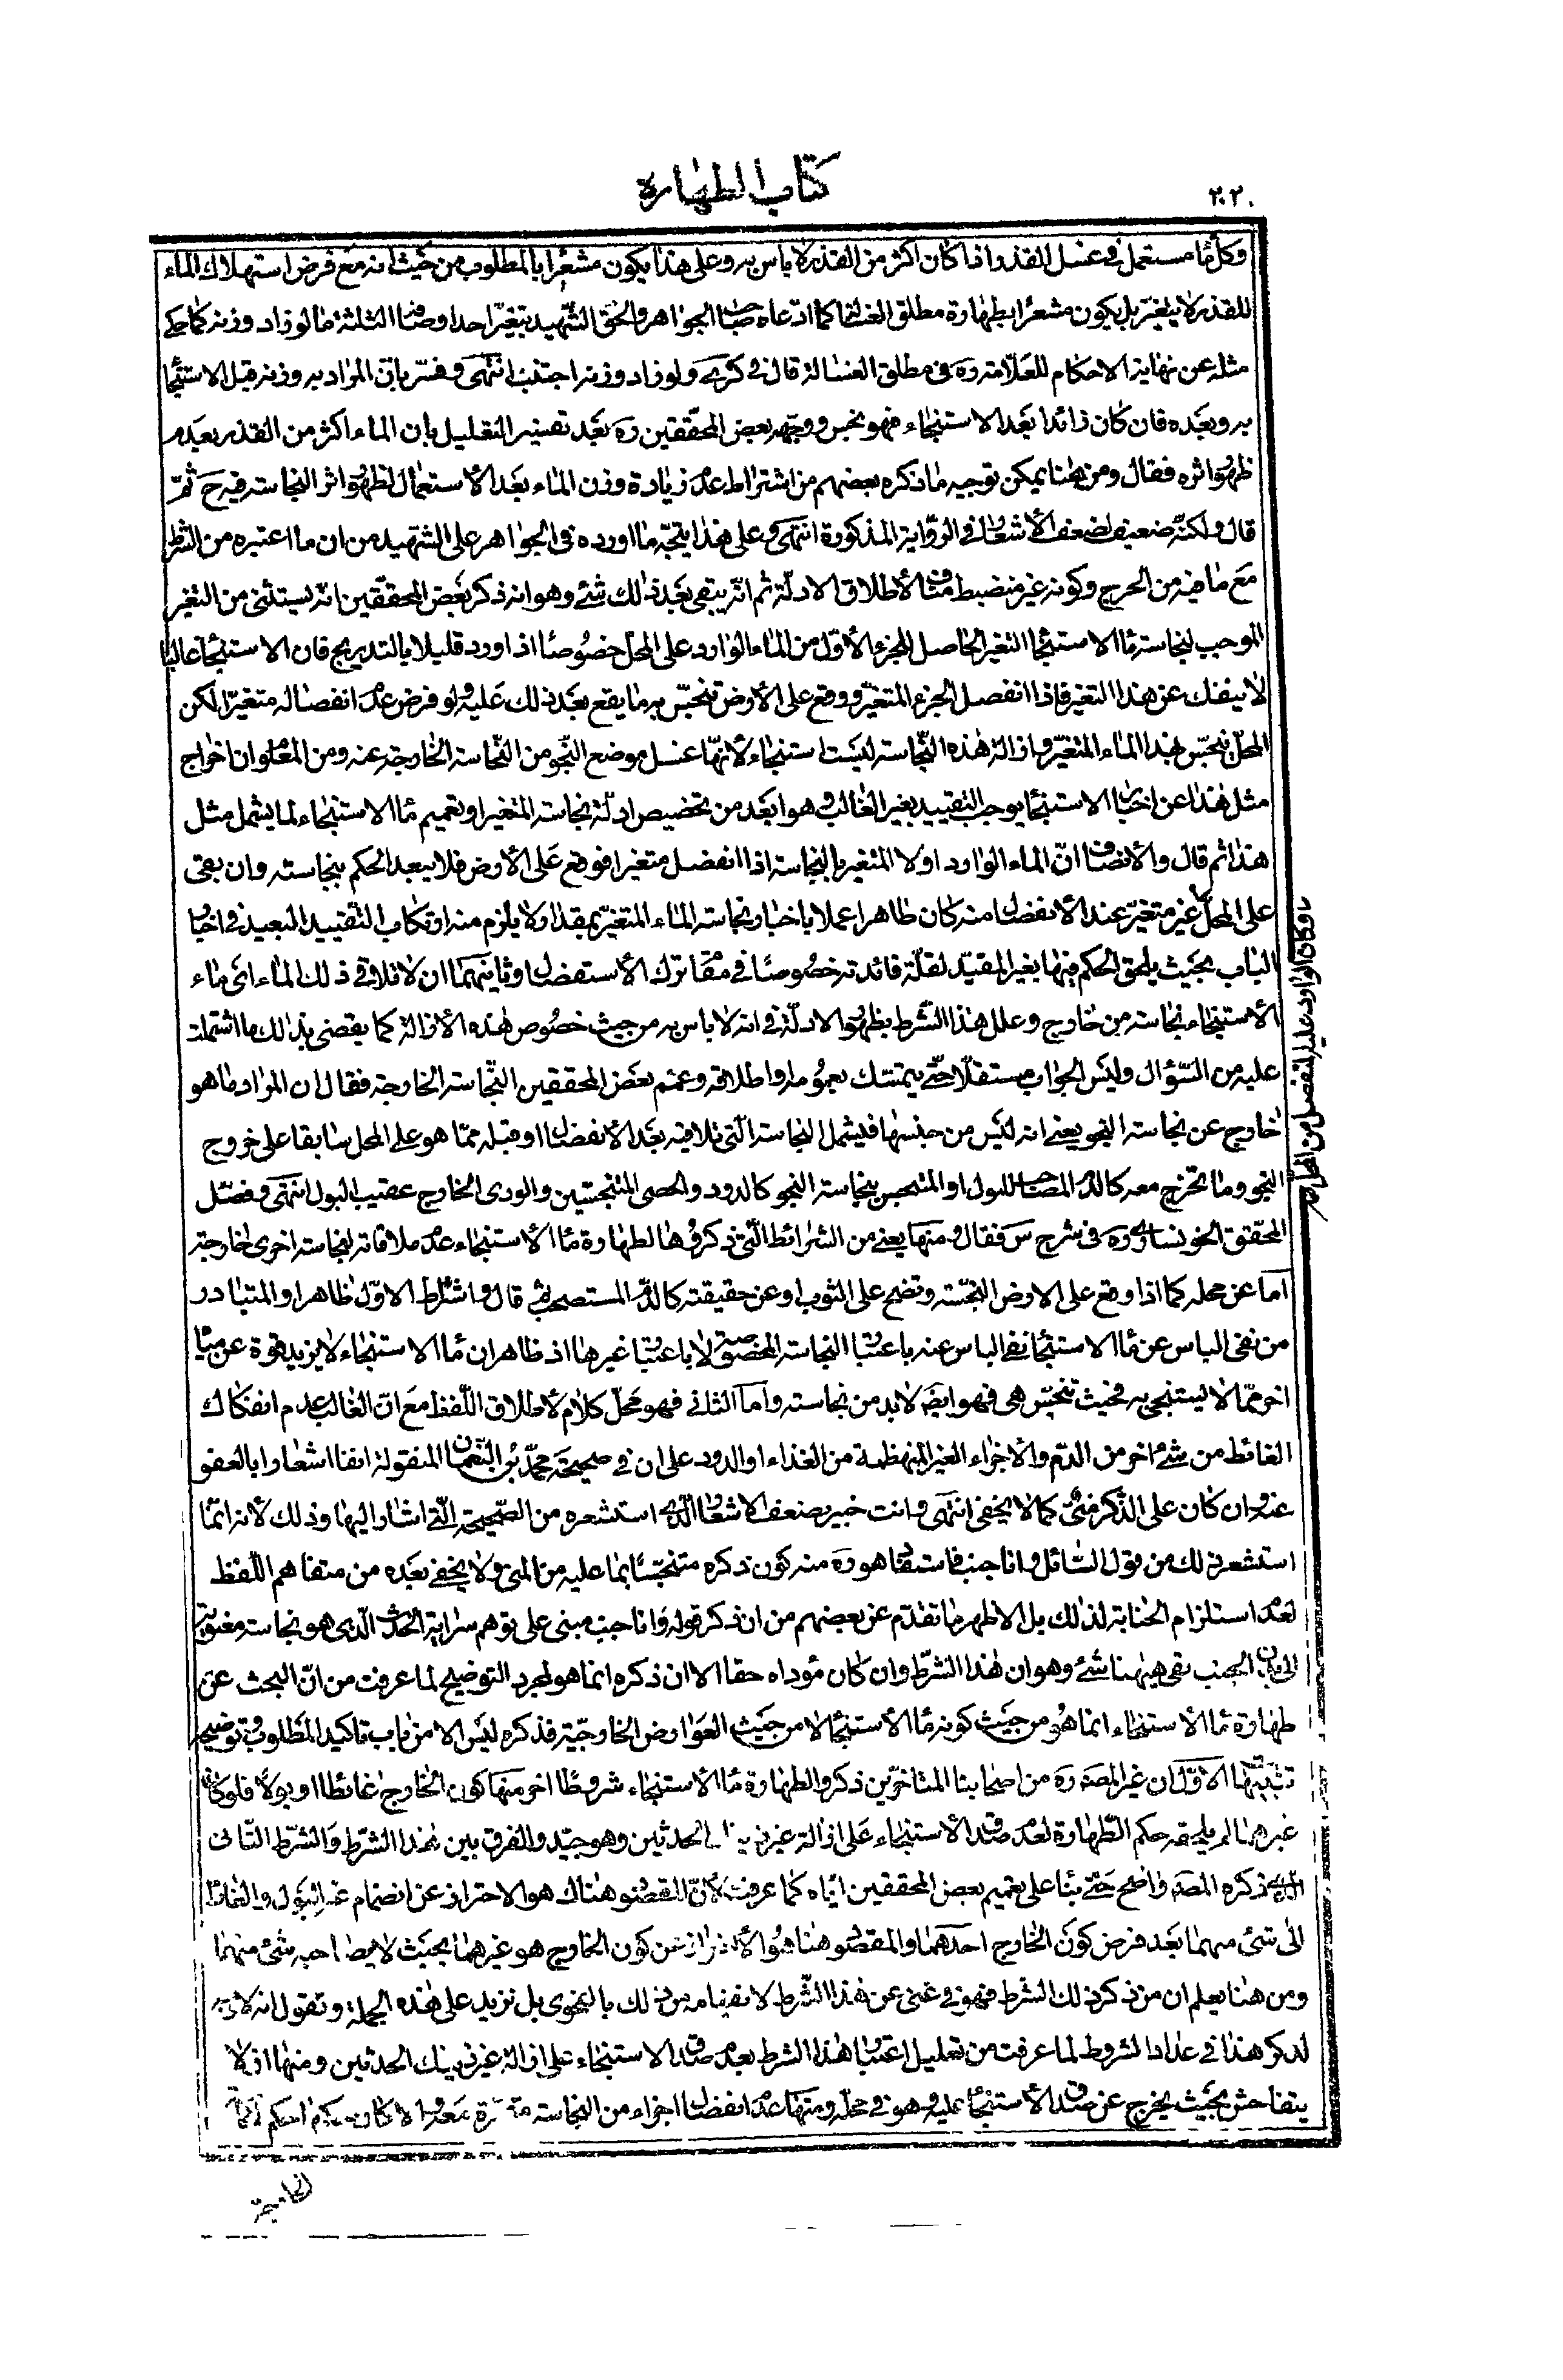 كتاب الطهارة
٢٠٢
وكل ما مستعمل فى غسل القذر واذا كان اكثر من القذر لا باس به وعلى هذا يكون مشعرا بالمطلوب من حيث انه مع فرض استهلاك الماء
للقذر لا يتغيّر بل يكون مشعرا بطهارة مطلق الغسالة كما ادّعاه صاحب الجواهر والحق الشّهيد بتغيّر احد اوصافنا الثلثة ما لو زاد وزنه كما حكى
مثله عن نهاية الاحكام للعلّامة ره فى مطلق الغسالة قال فى كرى ولو زاد وزنه اجتنب انتهى وفسّر بانّ المراد به وزنه قبل الاستنجاء
به وبعده فان كان زائدا بعد الاستنجاء فهو نجس ووجّهه بعض المحقّقين ره بعد تفسير التعليل بان الماء اكثر من القذر بعدم
ظهور اثره فقال ومن هنا يمكن توجيه ما ذكره بعضهم من اشتراط عدم زيادة وزن الماء بعد الاستعمال لظهور اثر النجاسة فيه ح ثمّ
قال ولكنّه ضعيف لضعف الاشعار فى الرّواية المذكورة انتهى وعلى هذا يتجّه ما اورده فى الجواهر على الشهيد من ان ما اعتبره من الشرط
مع ما فيه من الحرج وكونه غير منضبط مناف لاطلاق الادلّة ثم انّه يبقى بعد ذلك شئ وهو انه ذكر بعض المحققين انّه يستثنى من التغير
الموجب لنجاسة ماء الاستنجاء التغير الحاصل للجزء الاوّل من الماء الوارد على المحلّ خصوصا اذا ورد قليلا بالتدريج فان الاستنجاء غالبا
لا ينفك عن هذا التغير فاذا انفصل الجزء المتغيّر ووقع على الارض تنجّس به ما يقع بعد ذلك عليه ولو فرض عدم انفصاله متغيّرا لكن
المحلّ نجس بهذا الماء المتغيّر وازالة هذه النّجاسة ليست استنجاء لانّها غسل موضع النّجو من النّجاسة الخارجة عنه ومن المعلوم ان اخراج
مثل هذا عن اخبار الاستنجاء يوجب التقييد بغير الغالب وهو ابعد من تخصيص ادلّة نجاسة المتغير او تعميم ماء الاستنجاء لما يشمل مثل
هذا ثم قال والانصاف انّ الماء الوارد اولا المتغير بالنجاسة اذا انفصل متغيرا فوقع على الارض فلا يبعد الحكم بنجاسته وان بقى
على المحلّ غير متغيّر عند الانفصال منه كان طاهرا عملا باخبار نجاسة الماء المتغيّر بمقدار ولا يلزم منه ارتكاب التقييد البعيد فى اخبار
الباب بحيث يلحق الحكم فيها بغير المقيّد لقلّة فائدته خصوصا فى مقام ترك الاستفصال وثانيهما ان لا تلاقى ذلك الماء اى ماء
الاستنجاء نجاسة من خارج وعلل هذا الشّرط بظهور الادلّة فى انه لا باس به من حيث خصوص هذه الازالة كما يقضى بذلك ما اشتملت
عليه من السّؤال وليس الجواب مستقلّا حتّى يتمسّك بعمومه او اطلاقه وعمّم بعض المحققين النّجاسة الخارجة فقال ان المراد ما هو
خارج عن نجاسة النجو يعنى انه ليس من جنسها فيشمل النجاسة الّتى تلاقيه بعد الانفصال او قبله ممّا هو على المحل سابقا على خروج
النجو وما تخرج معه كالدّم المصاحب للبول او المتنجس بنجاسة النجو كالدود والحصى المتنجسين والودى الخارج عقيب البول انتهى وفصّل
المحقق الخونسارى ره فى شرح س فقال ومنها يعنى من الشرائط الّتى ذكروها لطهارة ماء الاستنجاء عدم ملاقاته لنجاسة اخرى خارجة
اما عن محله كما اذا وقع على الارض النجسة وتضح على الثوب او عن حقيقته كالدّم المستصحب له قال واشتراط الاوّل ظاهر اذ المتبادر
من نفى الباس عن ماء الاستنجاء نفى الباس عنه باعتبار النجاسة المخصوصة لا باعتبار غيرها اذ ظاهر ان ماء الاستنجاء لا يزيد قوة عن مياه
اخر ممّا لا يستنجى به فحيث تنجّس هى فهو ايضا لا بد من نجاسته واما الثانى فهو محلّ كلام لاطلاق اللّفظ مع انّ الغالب عدم انفكاك
الغائط من شئ اخر من الدّم والاجزاء الغير المنهظمة من الغذاء او الدود على ان فى صحيحة محمّد بن النّعمان المنقولة انفا اشعارا بالعفو
عنه وان كان على الذّكر منىّ كما لا يخفى انتهى وانت خبير بضعف الاشعار الّذى استشعره من الصّحيحة الّتى اشار اليها وذلك لانه انّما
استشعر ذلك من قول السّائل وانا جنب فاستفادها هو ره منه كون ذكره متنجّسا بما عليه من المنى ولا يخفى بعده من متفاهم اللّفظ
لعدم استلزام الجنابة لذلك بل الاظهر ما تقدّم عن بعضهم من ان ذكر قوله وانا جنب مبنى على توهم سراية الحدث الّذى هو نجاسة معنوية
الى بدن الجنب بقى هيهنا شئ وهو ان هذا الشّرط وان كان مؤداه حقا الا ان ذكره انما هو لمجرد التوضيح لما عرفت من انّ البحث عن
طهارة ماء الاستنجاء انما هو من حيث كونه ماء الاستنجاء لا من حيث العوارض الخارجيّة فذكره ليس الا من باب تاكيد المطلوب وتوضيحه
تنبيهات الاوّل ان غير المصره من اصحابنا المتاخّرين ذكروا لطهارة ماء الاستنجاء شروطا اخر منها كون الخارج غائطا او بولا فلو كان
غيرهما لم يلحقه حكم الطّهارة لعدم صدق الاستنجاء على ازالة غير الحدثين وهو جيّد والفرق بين هذا الشّرط والشّرط الثّانى
الّذى ذكره المصره واضح حتّى بناء على تعميم بعض المحققين ايّاه كما عرفت لانّ المقصود هناك هو الاحتراز عن انضمام غير البول والغائط
الى شئ منهما بعد فرض كون الخارج احدهما والمقصود هنا هو الاحتراز عن كون الخارج هو غيرهما بحيث لا يصاحبه شئ منهما
ومن هنا يعلم ان من ذكر ذلك الشرط فهو فى غنى عن هذا الشّرط لانفهامه من ذلك بالفحوى بل نزيد على هذه الجملة ونقول انه لا وجه
لذكر هذا فى عداد الشروط لما عرفت من تعليل اعتبار هذا الشرط بعدم صدق الاستنجاء على ازالة غير ذينك الحدثين ومنها ان لا
يتفاحش بحيث يخرج عن صدق الاستنجاء عليه وهو فى محلّه ومنها عدم انفصال اجزاء من النجاسة متميزة معه والا كان
الخارجة